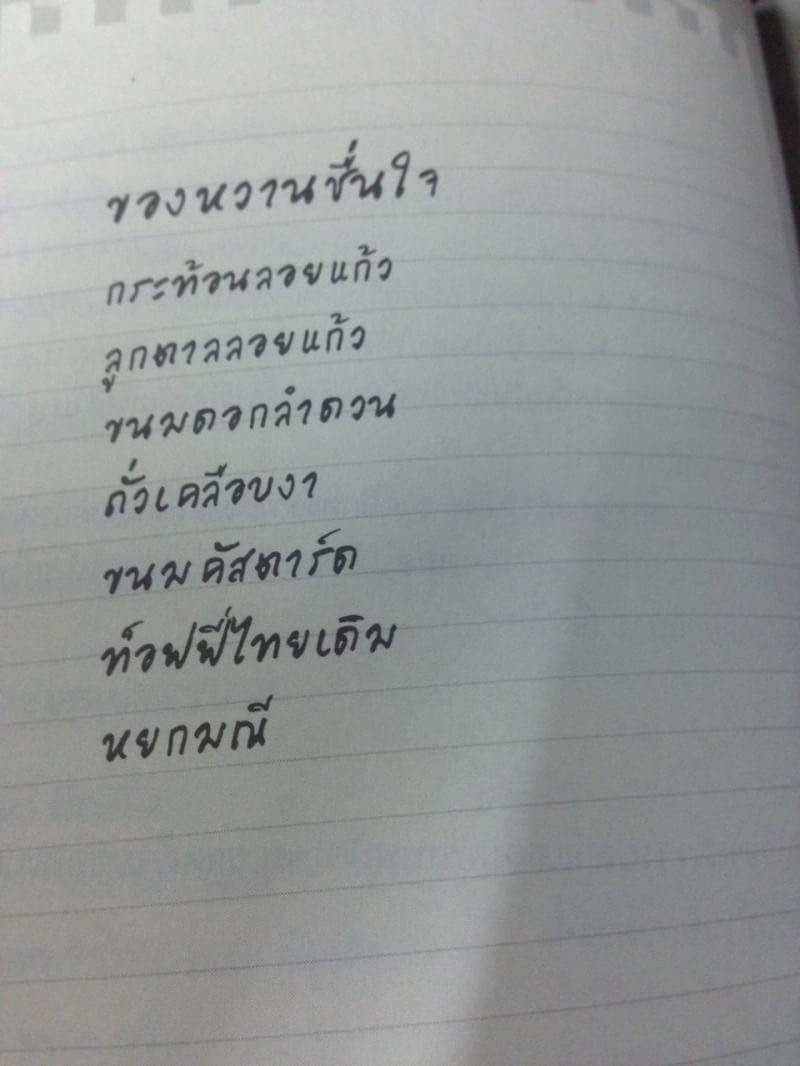 ของหวานชื่นใจ
กระท้อนลอยแก้ว
ลูกตาลลอยแก้ว
ขนมดอกลำดวน
ถั่วเคลือบงา
ขนมคัสตาร์ด
ท็อฟฟี่ไทยเดิม
หยกมณี